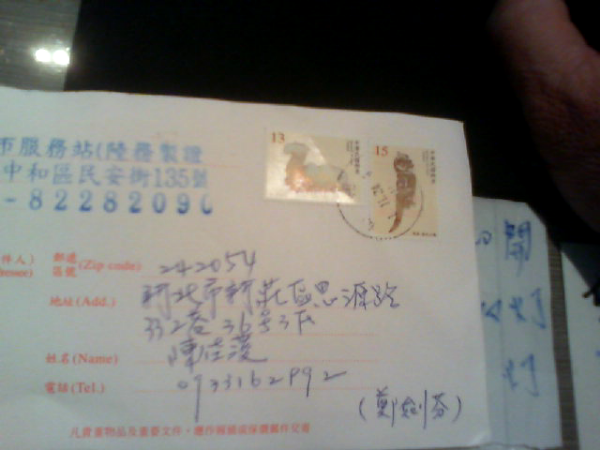 市服務站(陸務製證
中和區民安街135號
-82282090
13
15
郵遞區號(Zip code) 242054
地址(Add.) 新北市新莊區思源路
332巷36號3F
姓名(Name) 陳
電話(Tel.) 0933162992
(鄭 芬)
凡貴重物品及重要文件,應作報值或保價郵件交寄
開